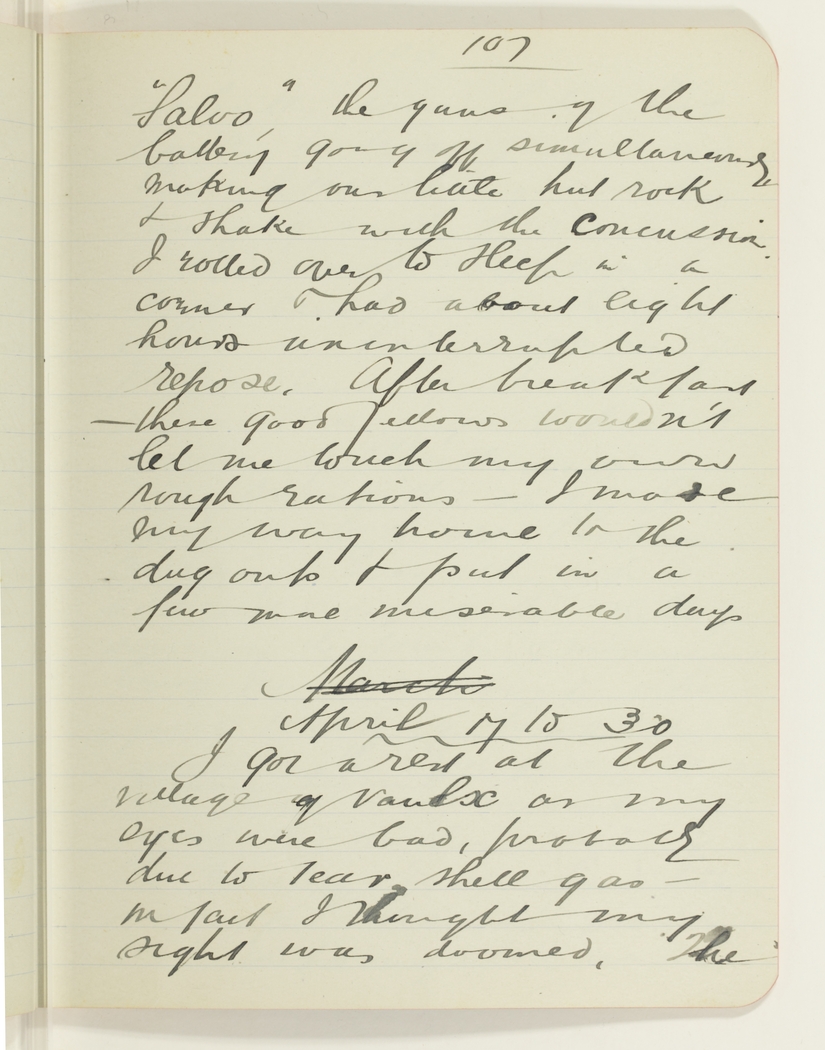 107
"Salvo," the guns of the
battery going off simultaneously
making our little hut rock
& shake with the concussion.
I rolled over to sleep in a
corner & had about eight
hours uninterrupted
repose. After breakfast
— these good fellows wouldn't
let me touch my own
rough rations — I made
my way home to the
dug outs & put in a
few more miserable days
March
April 17 to 30
I got a rest at the
village of Vaulx as my
eyes were bad, probably
due to tear shell gas —
in fact I thought my
sight was doomed. The